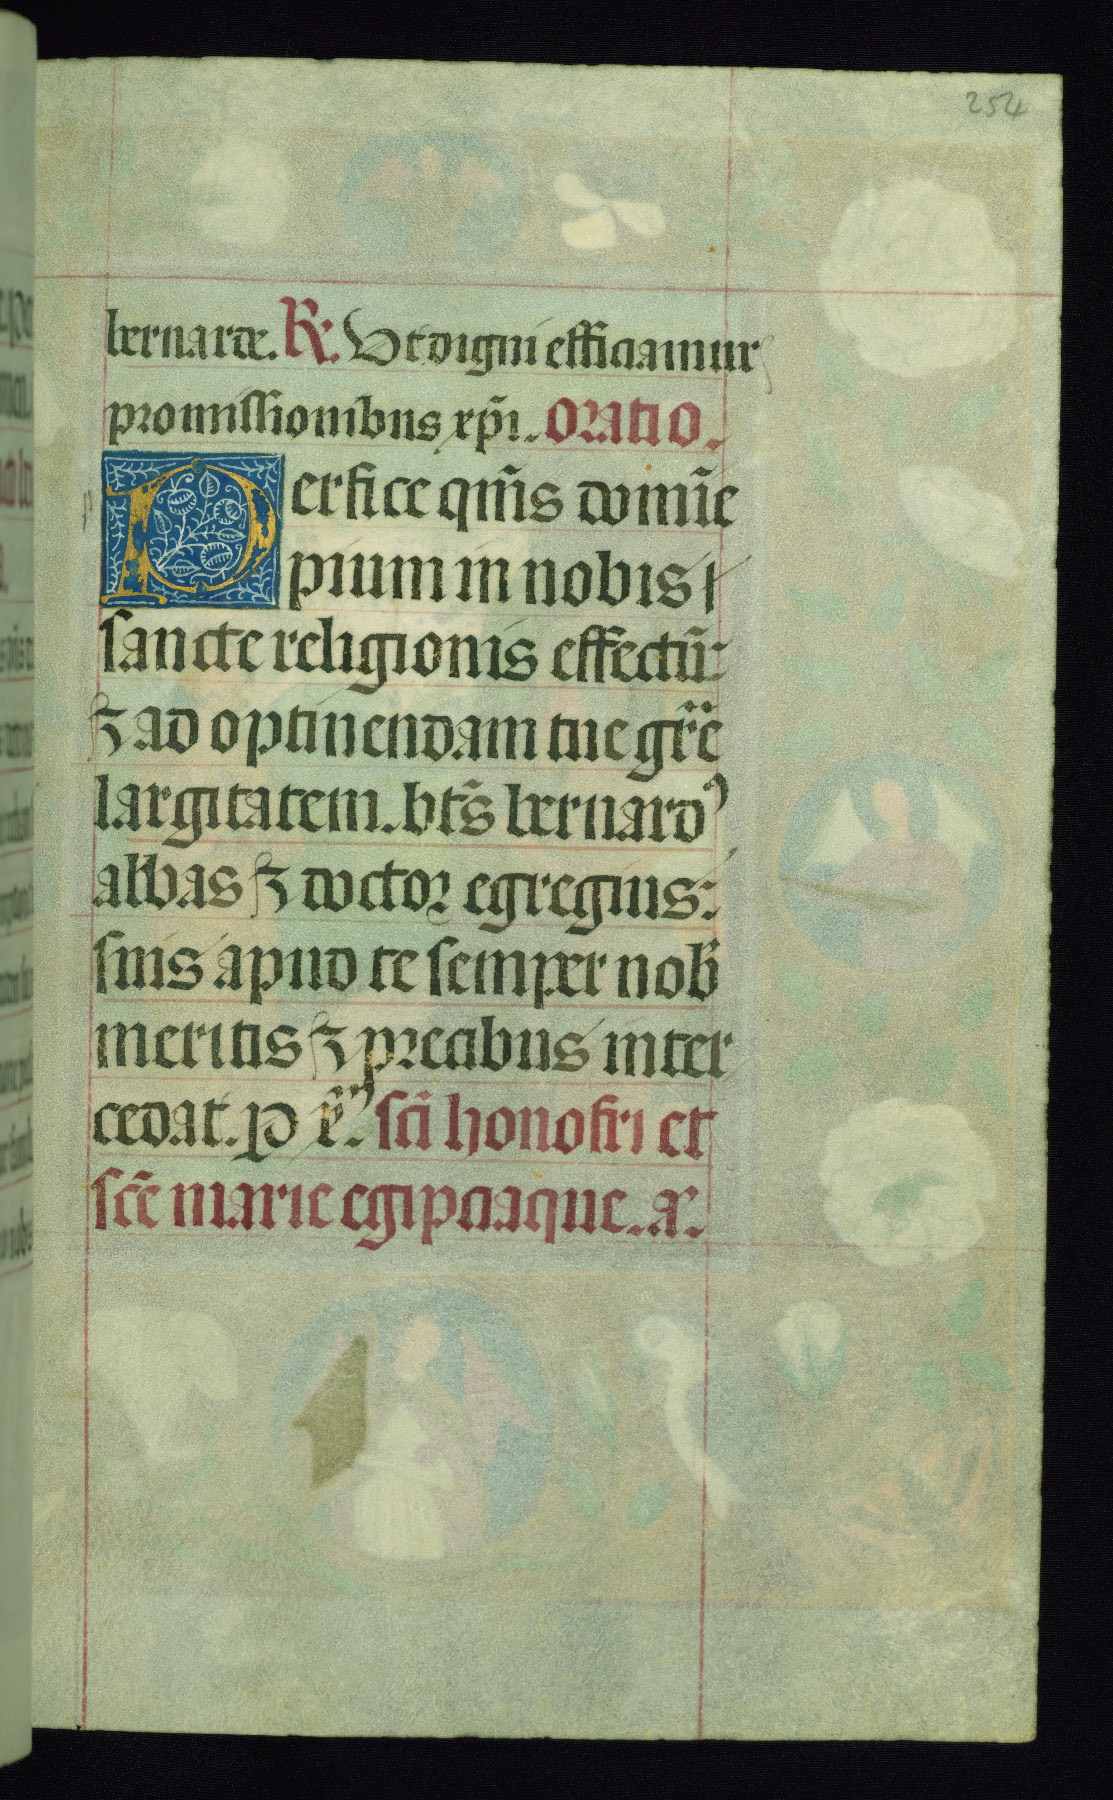 254
bernarde. R. Ut digni efficiamur
promissionibus xp̄i. Oratio.
Perfice qm̄s domīe
pium in nobis
sancte religionis effectū
⁊ ad optinendam tue gr̄e
largitatem. bt̄s bernardꝰ
abbas ⁊ doctor egregius:
suis apud te semper nob̄
meritis ⁊ precibus inter
cedat. p x̄. sc̄i honofri et
sc̄e marie egipciaque. a.